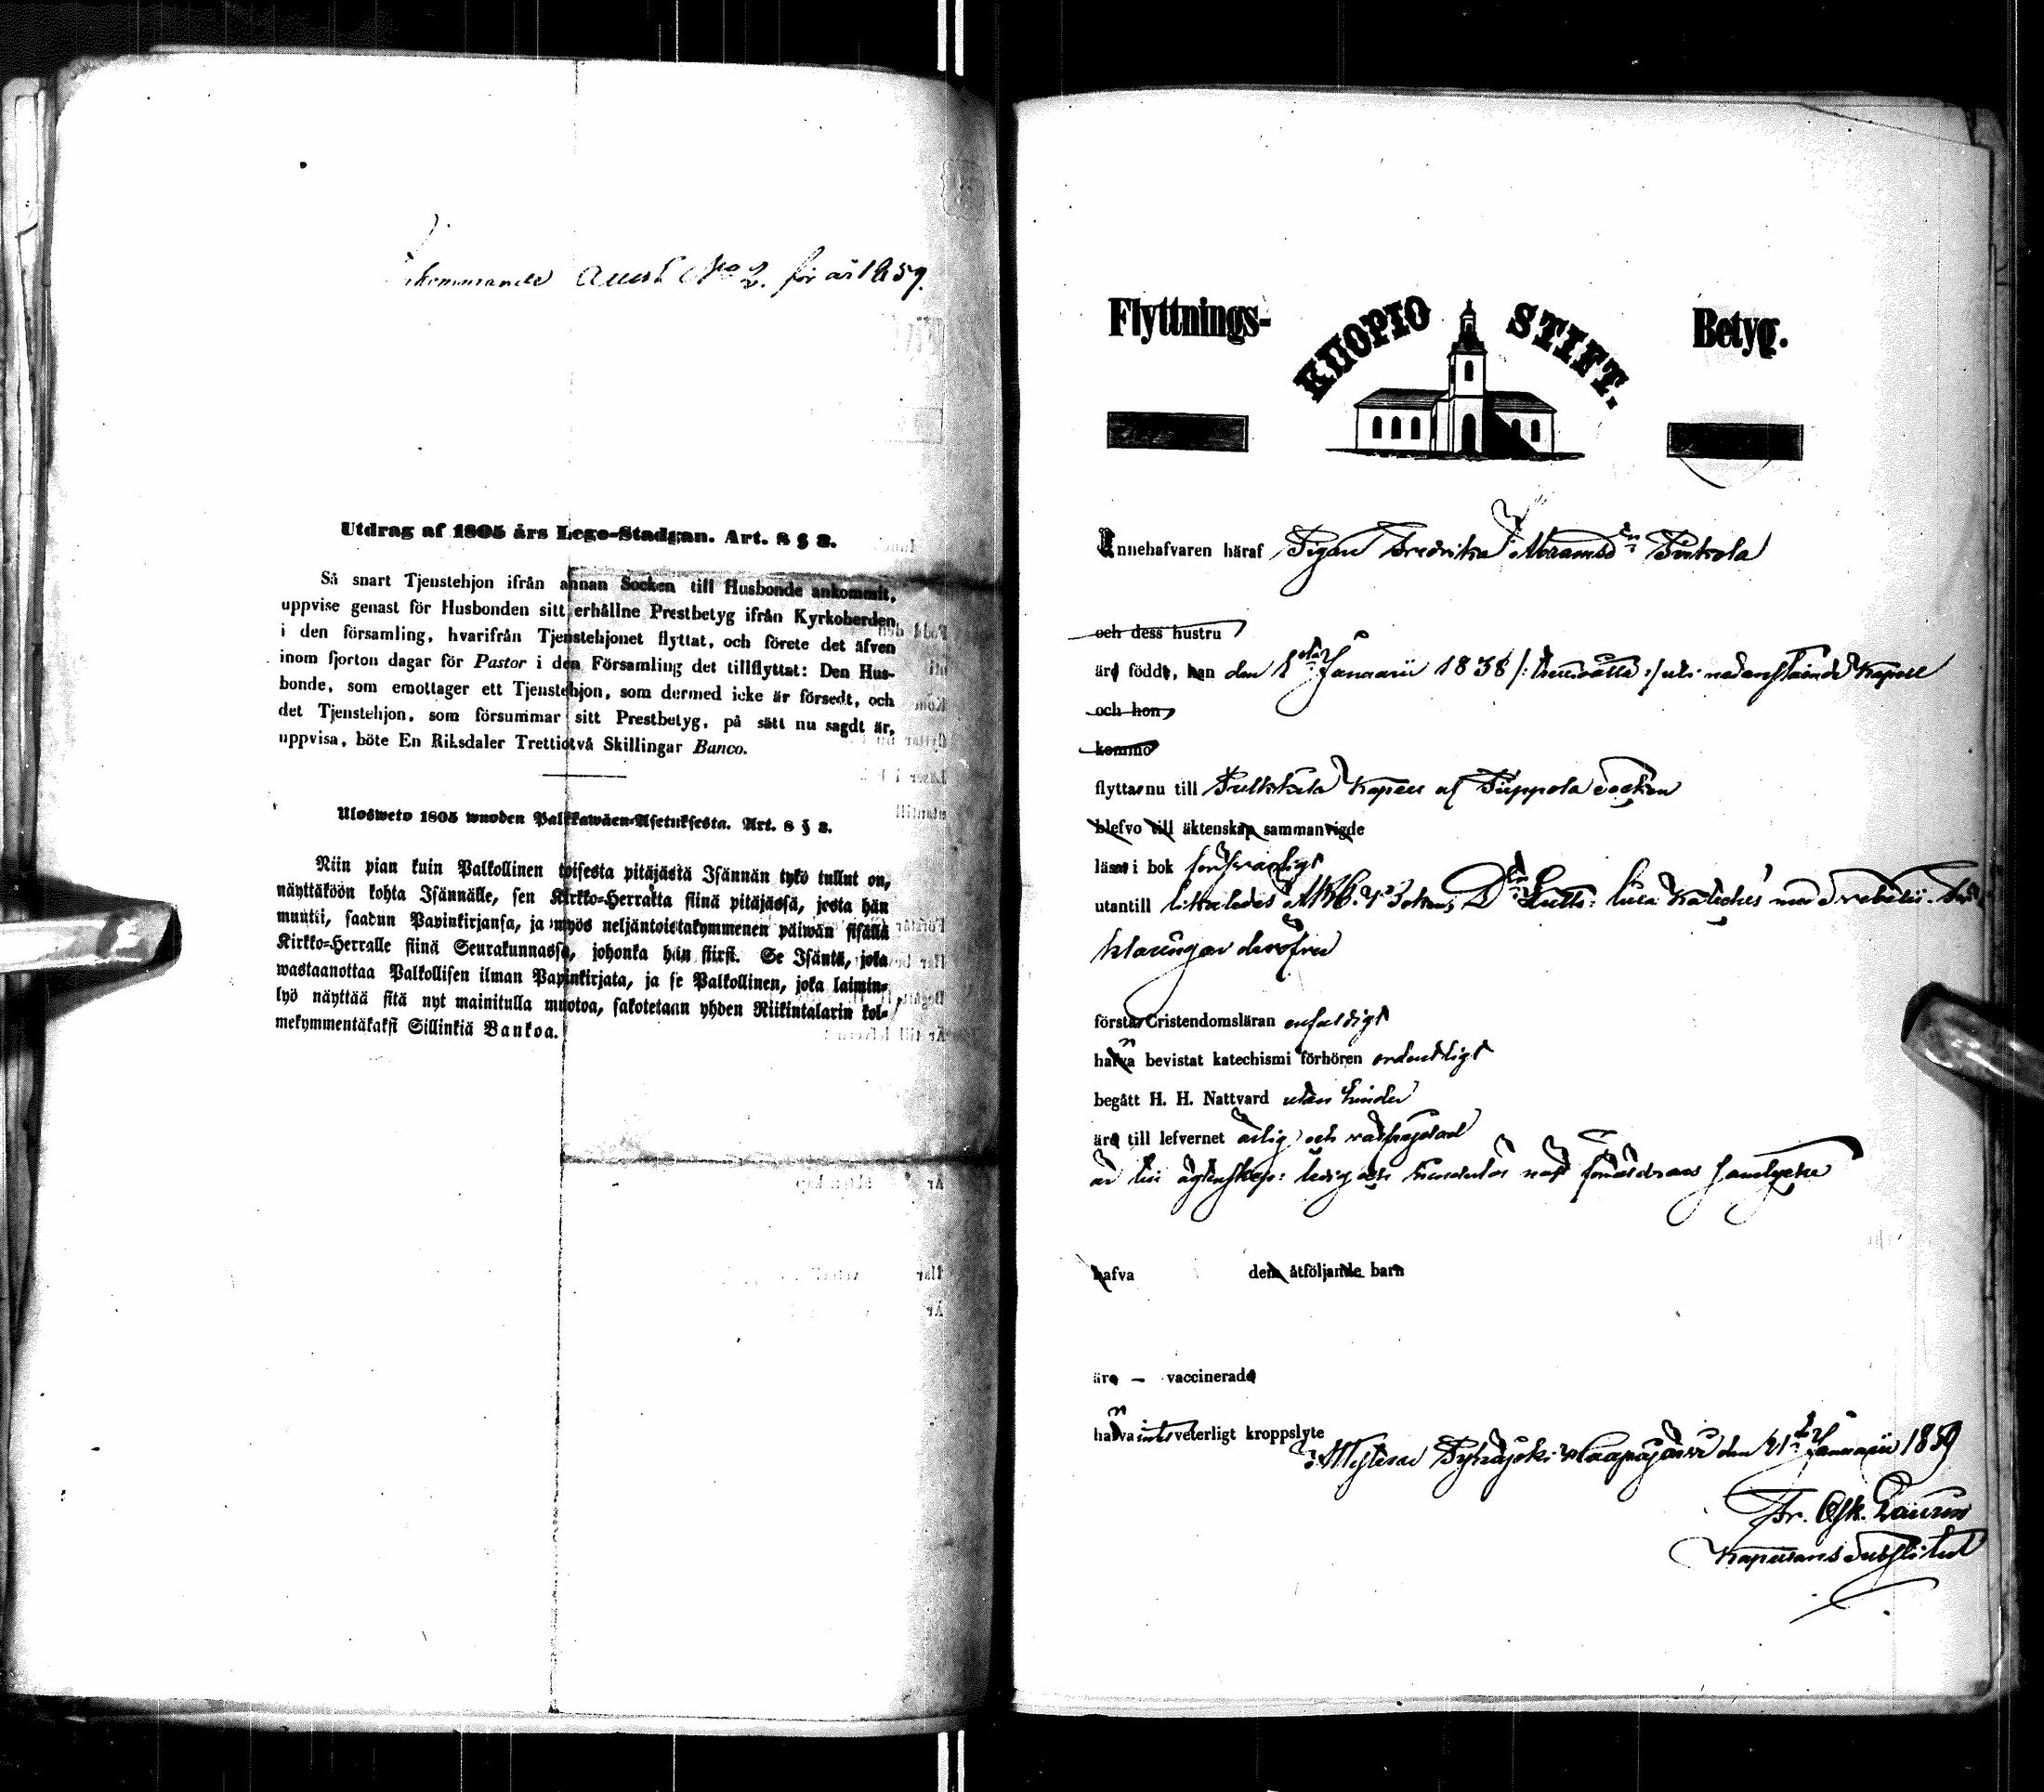 Auest No 2. för år 1859.
Utdrag af 1805 års Lego-Stadgan. Art. 8 § 8.
Så snart Tjenstehjon ifrån annan Socken till Husbonde ankommit,
uppvise genast för Husbonden sitt erhållne Prestbetyg ifrån Kyrkoherden
i den församling, hvarifrån Tjenstehjonet flyttat, och förete det äfven
inom fjorton dagar för Pastor i den Församling det tillflyttat: Den Hus-
bonde, som emottager ett Tjenstehjon, som dermed icke är försedt, och
det Tjenstehjon, som försummar sitt Prestbetyg, på sätt nu sagdt är,
uppvisa, böte En Riksdaler Trettiotvå Skillingar Banco.
Ulosweto 1805 wuoden Palkkawäen-Asetuksesta. Art. 8 § 8.
Niin pian kuin Palkollinen toisesta pitäjästä Isännän tykö tullut on,
näyttäköön kohta Isännälle, sen Kirkko-Herralta siinä pitäjässä, josta hän
muutti, saadun Papinkirjansa, ja myös neljäntoistakymmenen päiwän sisällä
Kirkko-Herralle siinä Seurakunnassa, johonka hän siirsi. Se Isäntä, joka
wastaanottaa Palkollisen ilman Papinkirjata, ja se Palkollinen, joka laimin-
lyö näyttää sitä nyt mainitulla muotoa, sakotetaan yhden Riikintalarin kol-
mekymmentäkaksi Sillinkiä Bankoa.
Flyttnings- KUOPIO STIFT. Betyg.
Innehafvaren häraf Pigan Fredrika Abramsdn
och dess hustru
äro födde, han den 1sta Januarii 1838 uti nedanstående Kapell
och hon
kommo
flyttar nu till Pulkkila Kapell af Piippola Socken
blefvo till äktenskap sammanvigde
läser i bok försvarligt
utantill Luth: lilla Kateches med
klaringar deröfver
förstår Cristendomsläran enfaldigt
hafva bevistat katechismi förhören ordentligt
begått H. H. Nattvard utan hinder
äro till lefvernet ärlig och välfrejdad
är till ägtenskap: ledig och hinderlös med föräldrars samtycke
hafva dem åtföljande barn
äro – vaccinerade
hafva intet veterligt kroppslyte
Pyhäjoki Haapajärvi den 21sta Januarii 1859
Fr. Osk. Laurin
Kapellans Substitut